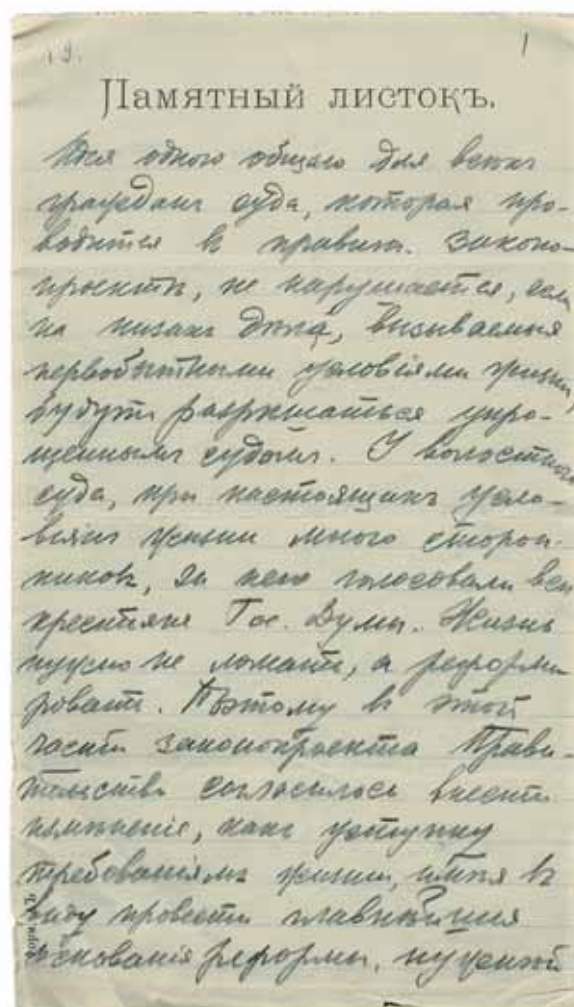 19.
1
Памятный листокъ.
Идея одного общаго для всѣхъ
гражданъ суда, которая про-
водится въ правит. законо-
проектѣ, не нарушается, если
на низахъ дѣла, вызываемыя
первобытными условіями жизни,
будутъ разрѣшаться упро-
щеннымъ судомъ. У волостного
суда, при настоящихъ усло-
віяхъ жизни много сторон-
никовъ, за него голосовали всѣ
крестьяне Гос. Думы. Жизнь
нужно не ломать, а реформи
ровать. Поэтому въ этой
части законопроекта Прави-
тельство согласилось внести
измѣненіе, какъ уступку
требованіямъ жизни, имѣя въ
виду провести главнѣйшія
основанія реформы, нужной